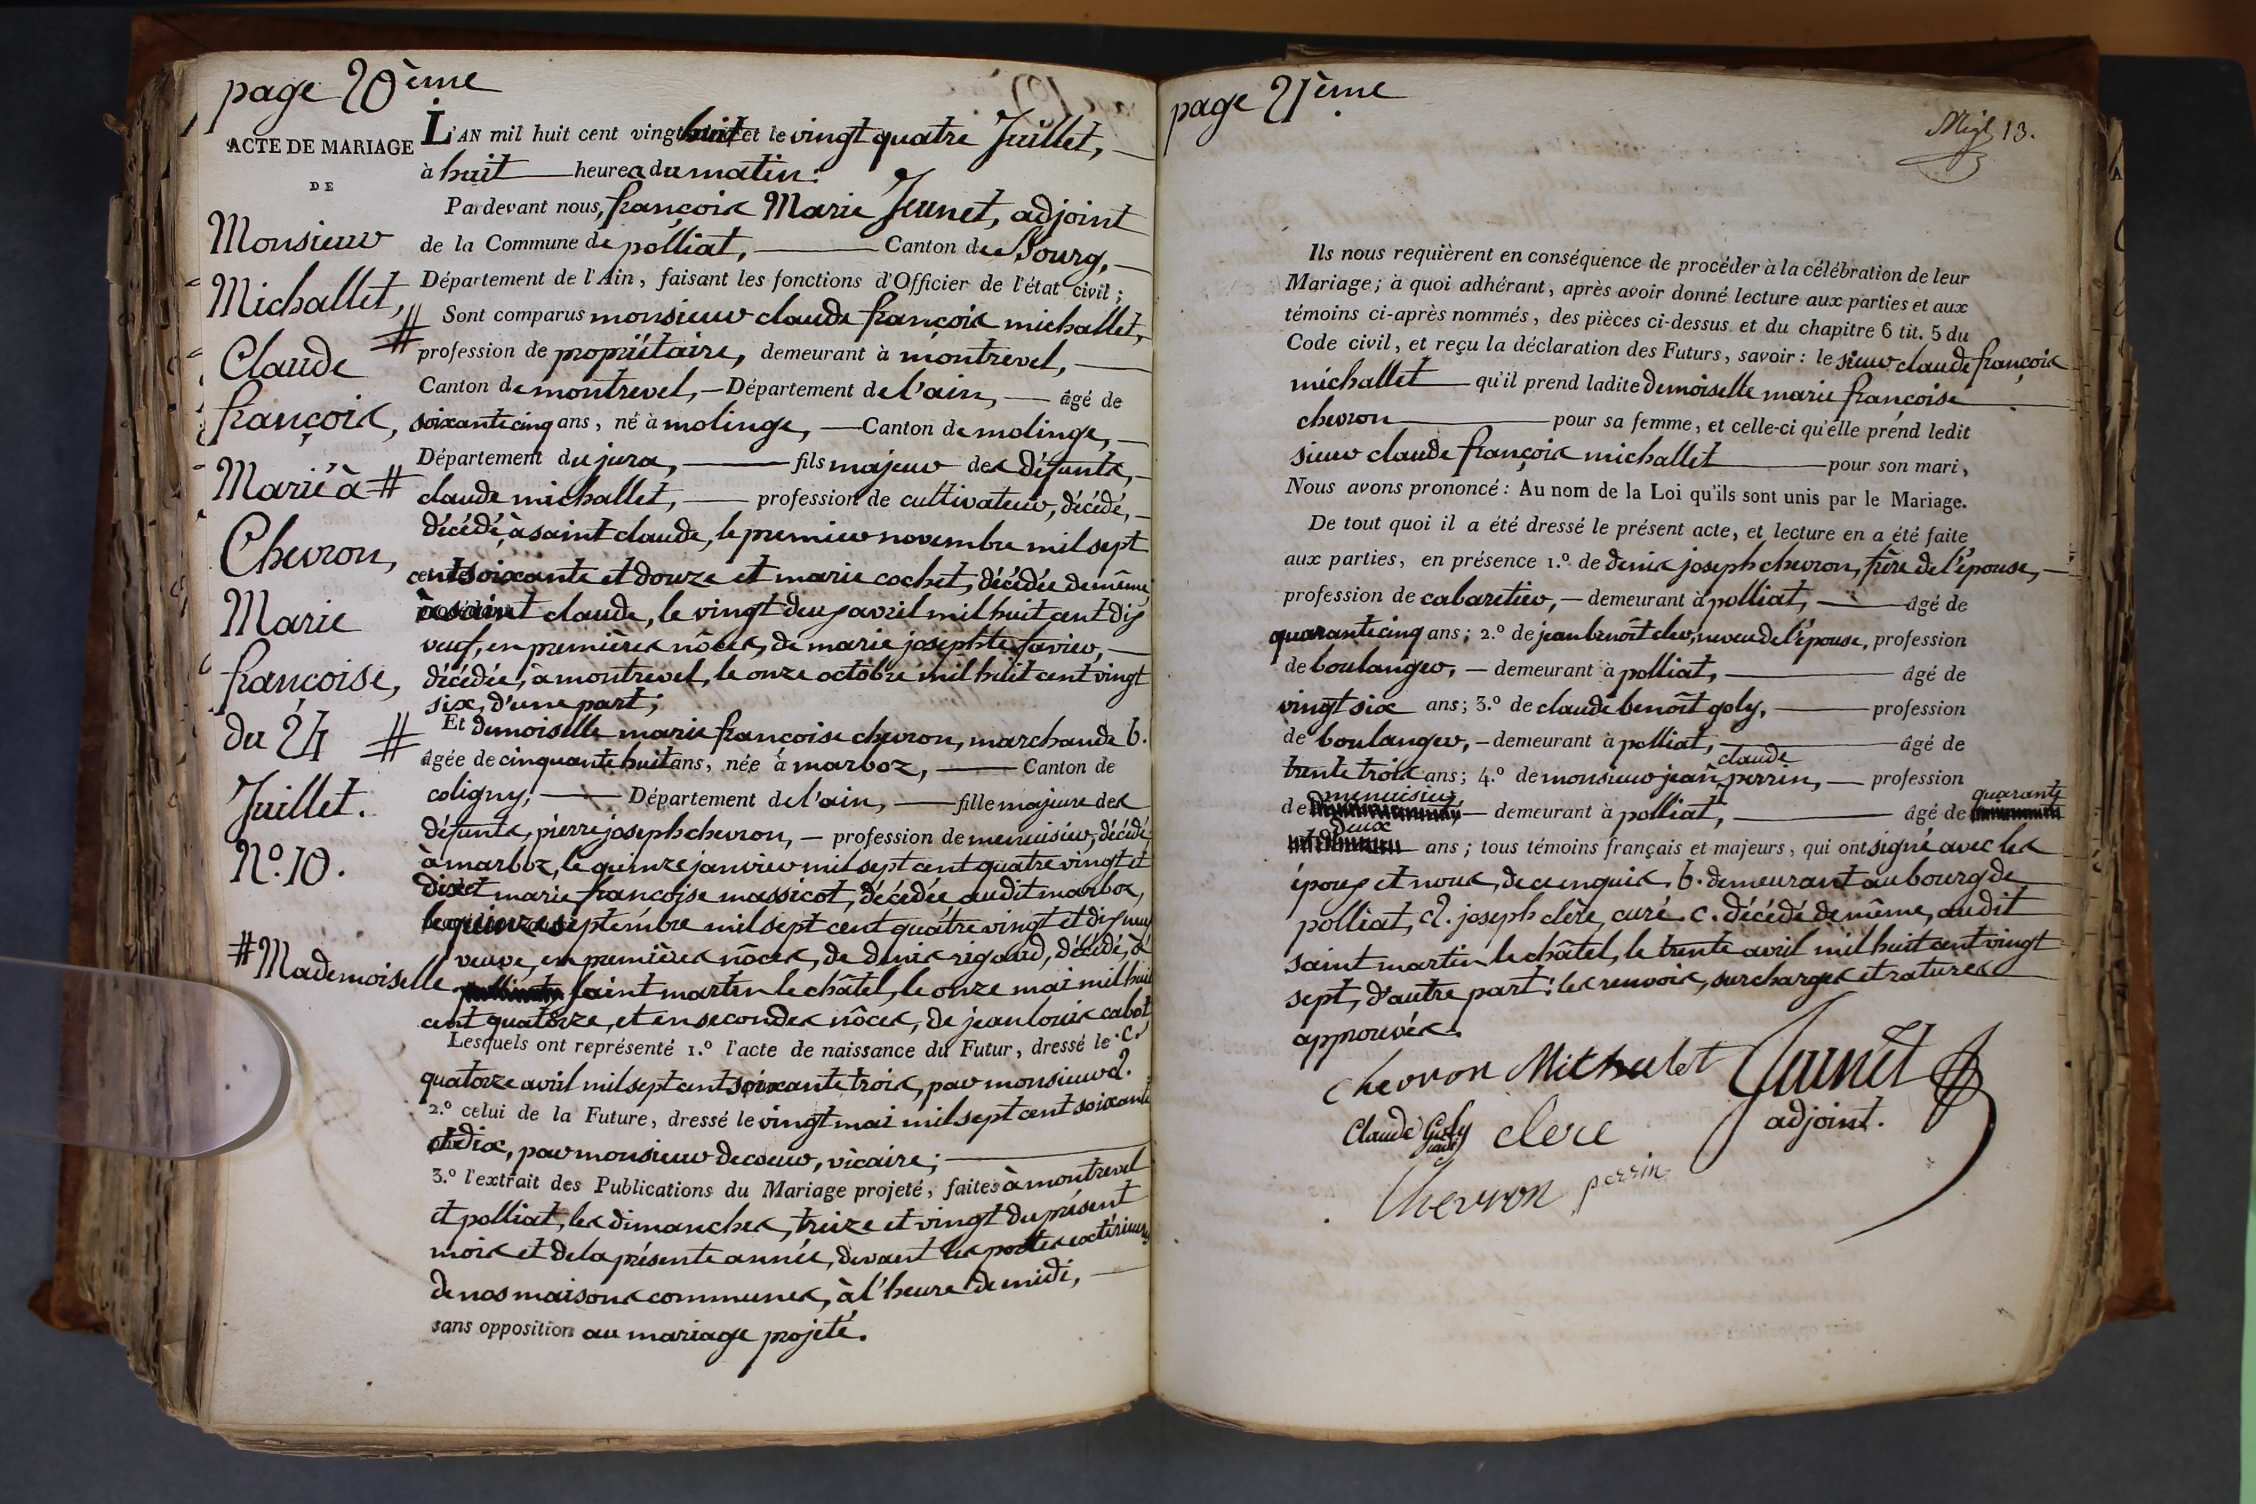 page 20ème
ACTE DE MARIAGE
DE
Monsieur
Michallet,
Claude
françois,
Marié à #
Chevron,
Marie
françoise,
du 24 #
Juillet.
N.º 10.
# Mademoiselle
L'AN mil huit cent vingt huit et le vingt quatre Juillet,
à huit heures du matin :
Pardevant nous, françois Marie Jeunet, adjoint
de la Commune de polliat, Canton de Bourg,
Département de l'Ain, faisant les fonctions d'Officier de l'état civil ;
# Sont comparus monsieur claude françois michallet,
profession de propriétaire, demeurant à montrevel,
Canton de montrevel, Département de l'ain, âgé de
soixante cinq ans, né à molinge, Canton de molinge,
Département du jura, fils majeur des défunts,
claude michallet, profession de cultivateur, décédé,
décédé, à saint claude, le premier novembre mil sept
cent soixante et douze et marie cochet, décédée de même
à saint claude, le vingt deux avril mil huit cent dix
veuf, en premières nôces, de marie josephte favier,
décédée, à montrevel, le onze octobre mil huit cent vingt
six, d'une part ;
Et demoiselle marie francoise chevron, marchande b.
âgée de cinquante huit ans, née à marboz, Canton de
coligny, Département de l'ain, fille majeure des
défunts, pierre joseph chevron, profession de menuisier, décédé
à marboz, le quinze janvier mil sept cent quatre vingt et
dix et marie francoise massicot, décédée audit marboz,
le quinze septembre mil sept cent quatre vingt et dix neuf
veuve, en premières nôces, de denis rigaud, décédé, à
saint martin le châtel, le onze mai mil huit
cent quatorze, et en secondes nôces, de jean louis cabot
Lesquels ont représenté 1.º l'acte de naissance du Futur, dressé le c.
quatorze avril mil sept cent soixante trois, par monsieur d.
2.º celui de la Future, dressé le vingt mai mil sept cent soixante
et dix, par monsieur decoeur, vicaire ;
3.º l'extrait des Publications du Mariage projeté, faites à montrevel
et polliat, les dimanches, treize et vingt du présent
mois et de la présente année, devant les portes extérieures
de nos maisons communes, à l'heure de midi,
sans opposition au mariage projeté.
page 21ème
13.
Ils nous requièrent en conséquence de procéder à la célébration de leur
Mariage ; à quoi adhérant, après avoir donné lecture aux parties et aux
témoins ci-après nommés, des pièces ci-dessus et du chapitre 6 tit. 5 du
Code civil, et reçu la déclaration des Futurs, savoir : le sieur claude françois
michallet qu'il prend ladite demoiselle marie francoise
chevron pour sa femme, et celle-ci qu'elle prend ledit
sieur claude françois michallet pour son mari,
Nous avons prononcé : Au nom de la Loi qu'ils sont unis par le Mariage.
De tout quoi il a été dressé le présent acte, et lecture en a été faite
aux parties, en présence 1.º de denis joseph chevron, frère de l'épouse,
profession de cabaretier, demeurant à polliat, âgé de
quarante cinq ans ; 2.º de jean benoît clerc, neveu de l'épouse, profession
de boulanger, demeurant à polliat, âgé de
vingt six ans ; 3.º de claude benoît goly, profession
de boulanger, demeurant à polliat, âgé de
claude
trente trois ans ; 4.º de monsieur jean perrin, profession
menuisier, quarante
de demeurant à polliat, âgé de
deux
ans ; tous témoins français et majeurs, qui ont signé avec les
époux et nous, de ce enquis. b. demeurant au bourg de
polliat, d. joseph clère, curé. c. décédé de même, audit
saint martin le châtel, le trente avril mil huit cent vingt
sept, d'autre part : les renvois, surcharges et ratures
approuvés.
chevron Michalet Jeunet
adjoint.
Claude Goly clerc
Chevron perrin